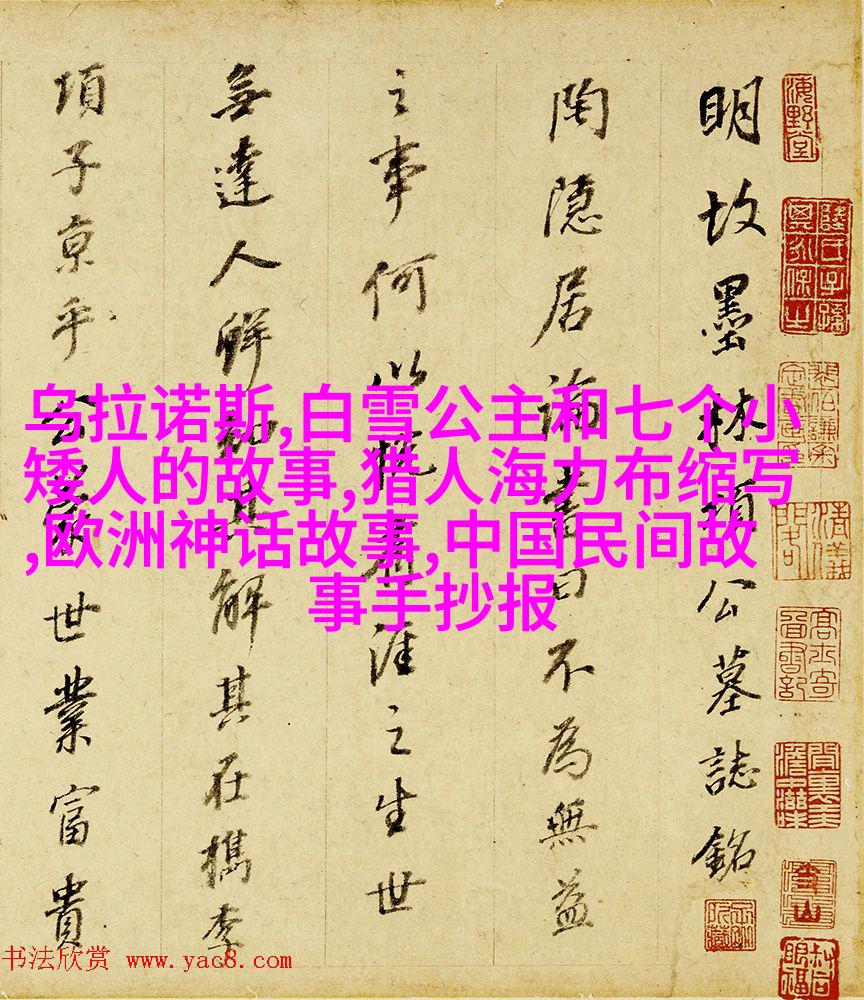 明故墨林項公墓誌銘
陶隱居論書曰不為無益
之事何以悅有涯之生世
無達人鮮知其解其在檇李
項子京乎公家世業富貴
乌拉诺斯,白雪公主和七个小
矮人的故事,猎人海力布缩写
,欧洲神话故事,中国民间故
事手抄报
海野堂
书法欣赏 www.yac8.com